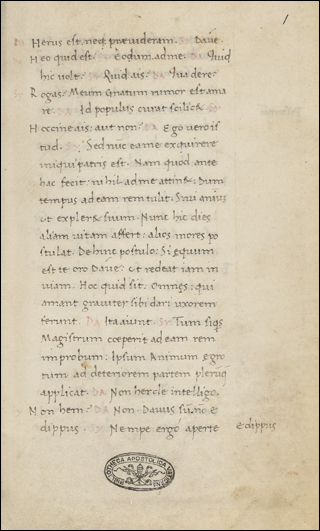 1
Herus est. neq; prævideram. SI Dave.
Heo quid est. SI Eodum ad me. DA Quid
hic volt. SI Quid ais. DA Qua de re
Rogas. Meum Gnatum rumor est ama
re. DA Id populus curat scilic&
Hoccine ais: aut non. DA Ego vero is
tud. SI Sed nūc ea me exquirere
iniqui patris est. Nam quod ante
hac fecit: nihil ad me attin&. Dum
tempus ad eam rem tulit. Sivi animū
ut expler& suum. Nunc hic dies
aliam vitam affert: alios mores po
stulat. Dehinc postulo: Si equum
est te oro Dave: ut redeat iam in
viam. Hoc quid sit. Omnes: qui
amant graviter sibi dari uxorem
ferunt. DA Ita aiunt. SI Tum siq̄s
Magistrum coeperit ad eam rem
improbum: Ipsum Animum egro
tum ad deteriorem partem plerūq;
applicat. DA Non hercle intelligo.
Non hem. DA Non. Davus sū: nō e
dippus. SI Nempe ergo aperte
edippus
BIBLIOTHECA APOSTOLICA VATICANA